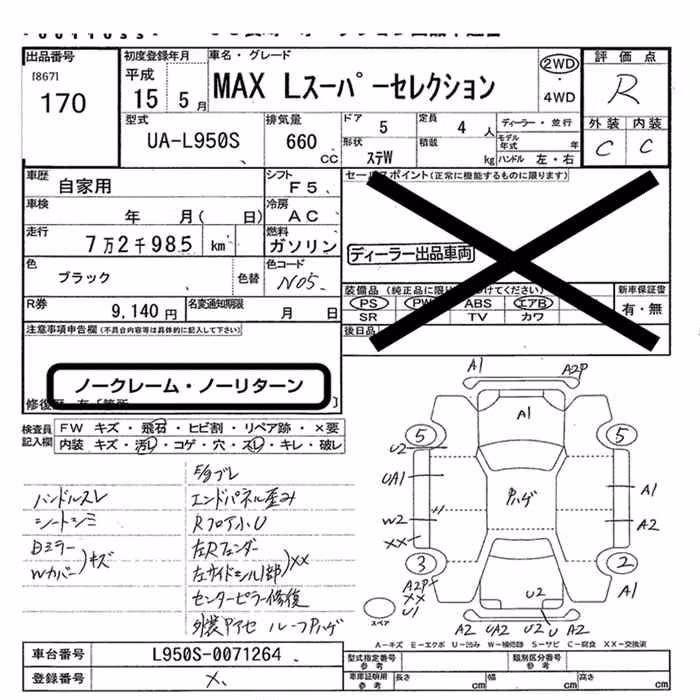 出品番号
[867]
170
初度登録年月
平成
15 5月
車名・グレード
MAX Lスーパーセレクション
2WD
・
4WD
評価点
R
外装 内装
C C
型式
UA-L950S
排気量
660
CC
ドア
5
定員
4 人
形状
ステW
積載
kg
ディーラー・並行
モデル年式 年
ハンドル 左・右
車歴
自家用
シフト
F5
車検
年 月( 日)
冷房
AC
走行
7万2千985 km
燃料
ガソリン
色
ブラック
色替
色コード
N05
R券
9,140円
名変通知期限
月 日
セールスポイント(正常に機能するものに限ります)
ディーラー出品車両
装備品
PS PW ABS エアB
SR TV カワ
新車保証書
有・無
後日品
注意事項申告欄(不具合内容等は具体的に記入して下さい)
ノークレーム・ノーリターン
検査員
記入欄
FW キズ・飛石・ヒビ割・リペア跡・×要
内装 キズ・汚レ・コゲ・穴・スレ・キレ・破レ
ハンドルスレ
シートシミ
Bミラー
Wカバー
キズ
E/gブレ
エンドパネル歪み
Rフロア小U
左Rフェンダー
左サイドシル1部
XX
センターピラー修復
外装アクセ ルーフPハゲ
A1
A2P
A1
5
5
U2
UA1
W2
XX
Pハゲ
A1
A2
3
2
A2P
XX
U1
A1
U2
A2 UA2 U2 U A2
スペア
A-キズ E-エクボ U-凹み W-補修跡 S-サビ C-腐食 XX-交換済
車台番号
L950S-0071264
登録番号
×
型式指定番号
参考
類別区分番号
参考
車庫証明用
参考
長さ cm
幅 cm
高さ cm